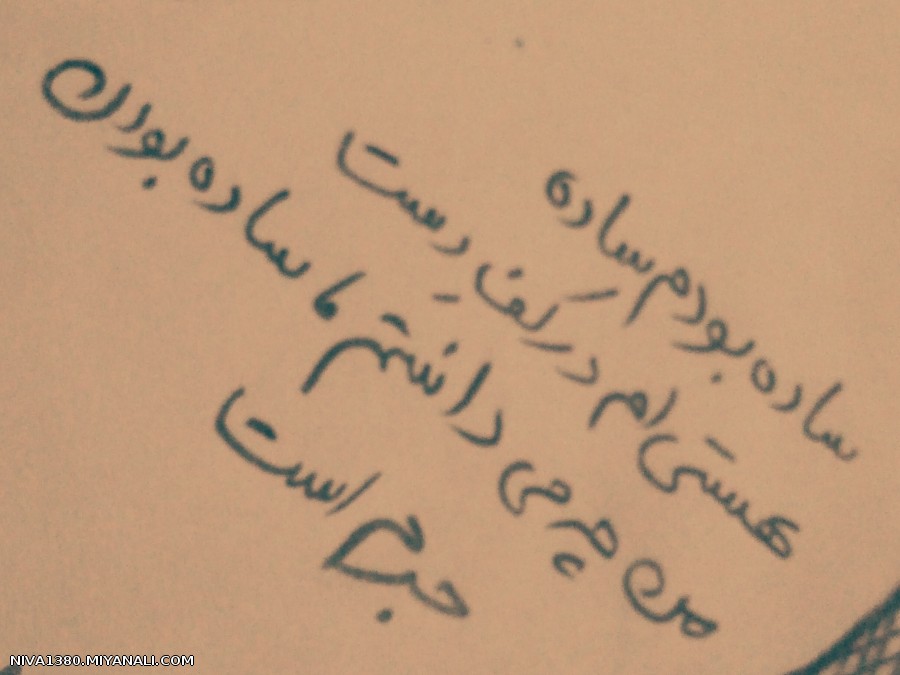 ساده بودم ساده
هستی ام در کف دست
من چه می دانستم ساده بودن
جرم است
NIVA1380.MIYANALI.COM